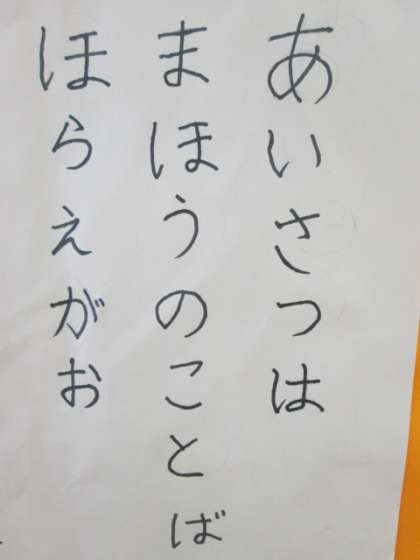 あいさつは
まほうのことば
ほらえがお